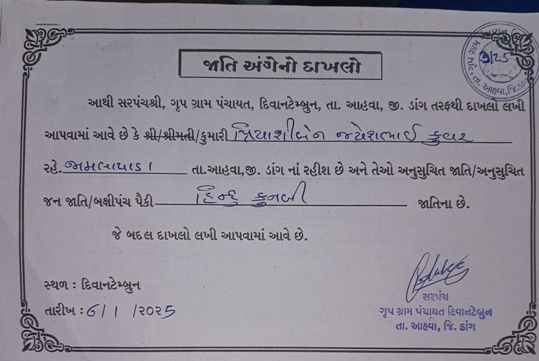 જાતિ અંગેનો દાખલો
આથી સરપંચશ્રી, ગૃપ ગ્રામ પંચાયત, દિવાનટેમ્બ્રુન, તા. આહવા, જી. ડાંગ તરફથી દાખલો લખી
આપવામાં આવે છે કે શ્રી/શ્રીમતી/કુમારી પ્રિયાશીબેન જયેશભાઈ કુવર
રહે. જામલાપાડા તા.આહવા,જી. ડાંગ નાં રહીશ છે અને તેઓ અનુસુચિત જાતિ/અનુસુચિત
જન જાતિ/બક્ષીપંચ પૈકી હિન્દુ કુનબી જાતિના છે.
જે બદલ દાખલો લખી આપવામાં આવે છે.
સ્થળ : દિવાનટેમ્બ્રુન
તારીખ : 6/1/2025
સરપંચ
ગૃપ ગ્રામ પંચાયત દિવાનટેબ્રુન
તા. આહવા, જિ. ડાંગ